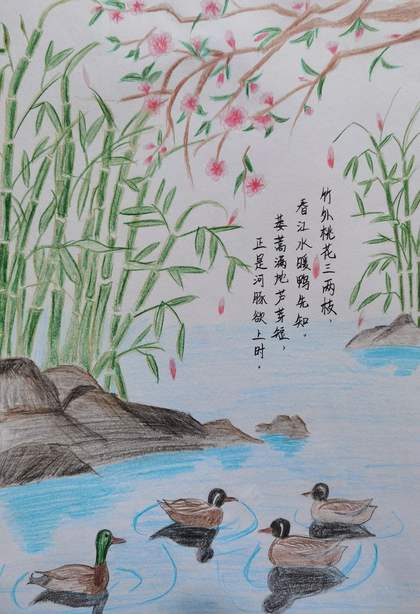 竹外桃花三两枝，
春江水暖鸭先知。
蒌蒿满地芦芽短，
正是河豚欲上时。